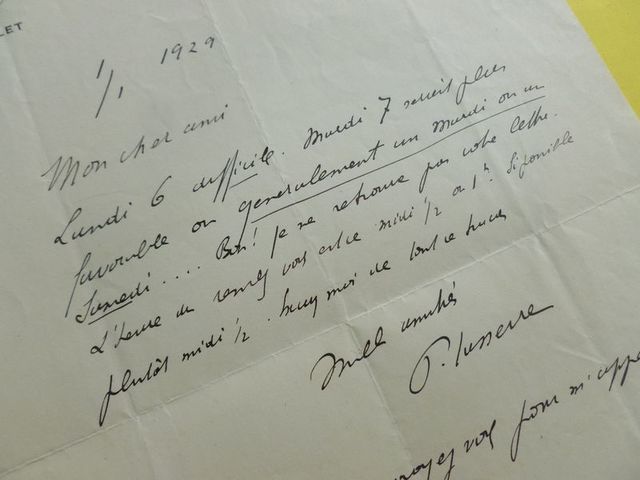 LET
1/1 1929
Mon cher ami
Lundi 6 difficile. Mardi 7 serait plus
favorable ou généralement un mardi ou un
Samedi .... Bon! Je ne retrouve pas votre lettre.
L'heure du rendez vous est ce midi 1/2 ou 1h. disponible
plutôt midi 1/2. moi de tout ce
Mille amitiés
P. Lasserre
voyez vous pour m'appe